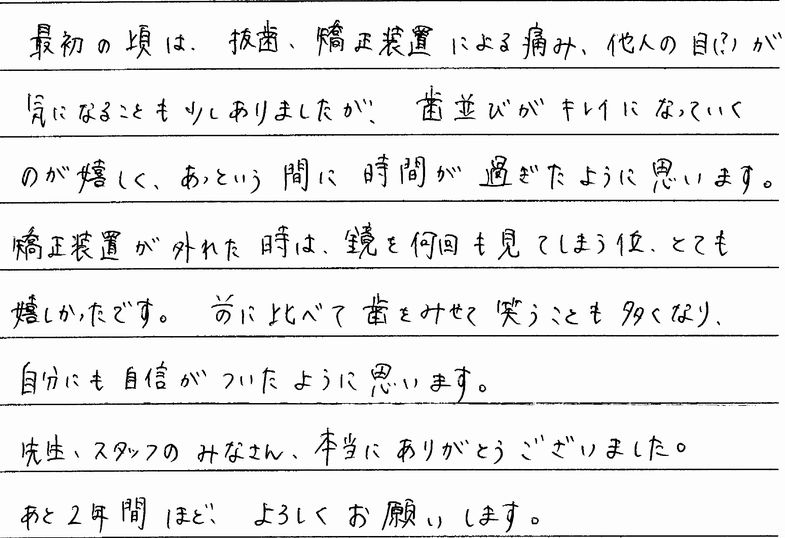 最初の頃は、抜歯、矯正装置による痛み、他人の目(?)が
気になることも少しありましたが、歯並びがキレイになっていく
のが嬉しく、あっという間に時間が過ぎたように思います。
矯正装置が外れた時は、鏡を何回も見てしまう位、とても
嬉しかったです。前に比べて歯をみせて笑うことも多くなり、
自分にも自信がついたように思います。
先生、スタッフのみなさん、本当にありがとうございました。
あと2年間ほど、よろしくお願いします。